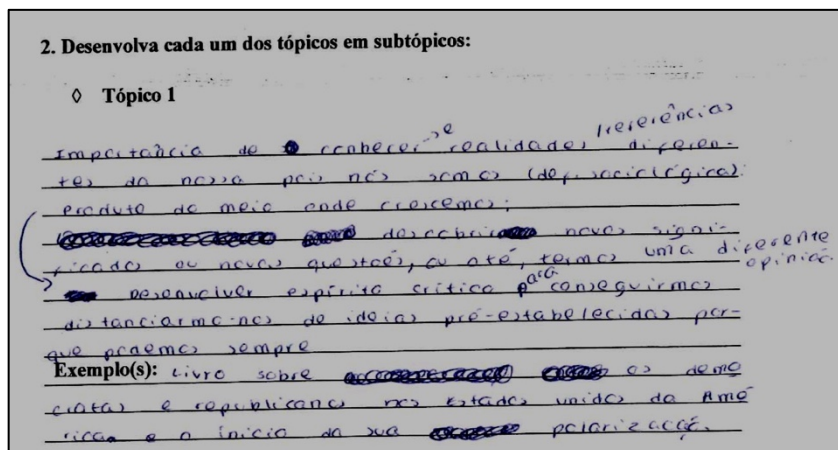 2. Desenvolva cada um dos tópicos em subtópicos:
◊ Tópico 1
Importância de conhecer-se realidades /referências diferen-
tes da nossa pois nós somos (def. sociológica):
produto do meio onde crescemos;
descobrir novos signi-
ficados ou novas questões, ou até, termos uma diferente opinião.
Desenvolver espírito crítico para conseguirmos
distanciarmo-nos de ideias pré-estabelecidas por-
que podemos sempre
Exemplo(s): Livro sobre os demo
cratas e republicanos nos Estados unidos da Amé
rica e o início da sua polarização.